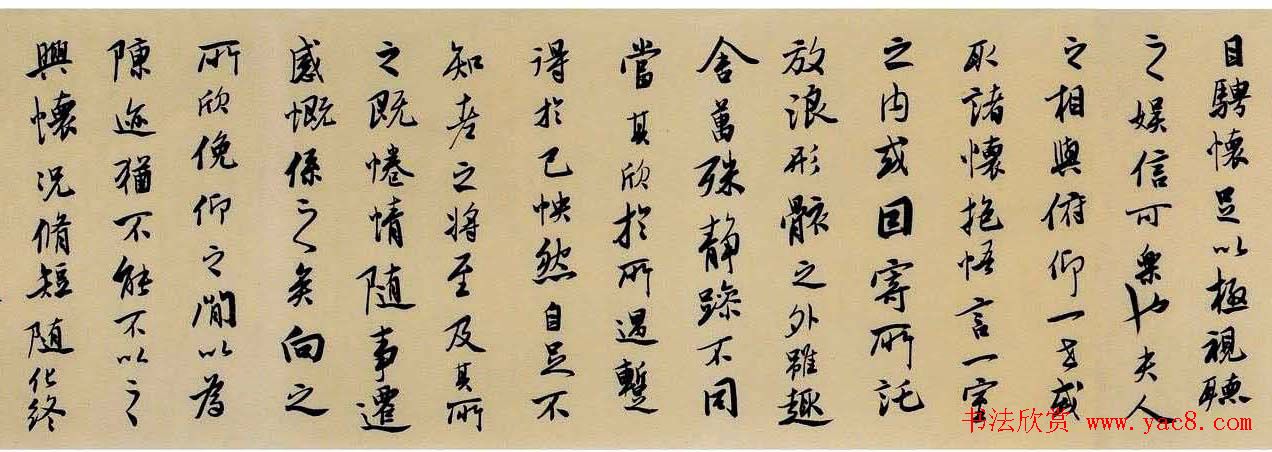 目騁懷足以極視聽
之娛信可樂也夫人
之相與俯仰一世或
取諸懷抱悟言一室
之內或因寄所託
放浪形骸之外雖趣
舍萬殊靜躁不同
當其欣於所遇暫
得於己怏然自足不
知老之將至及其所
之既惓情隨事遷
感慨係之矣向之
所欣俛仰之間以為
陳迹猶不能不以之
興懷況脩短隨化終
书法欣赏 www.yac8.com